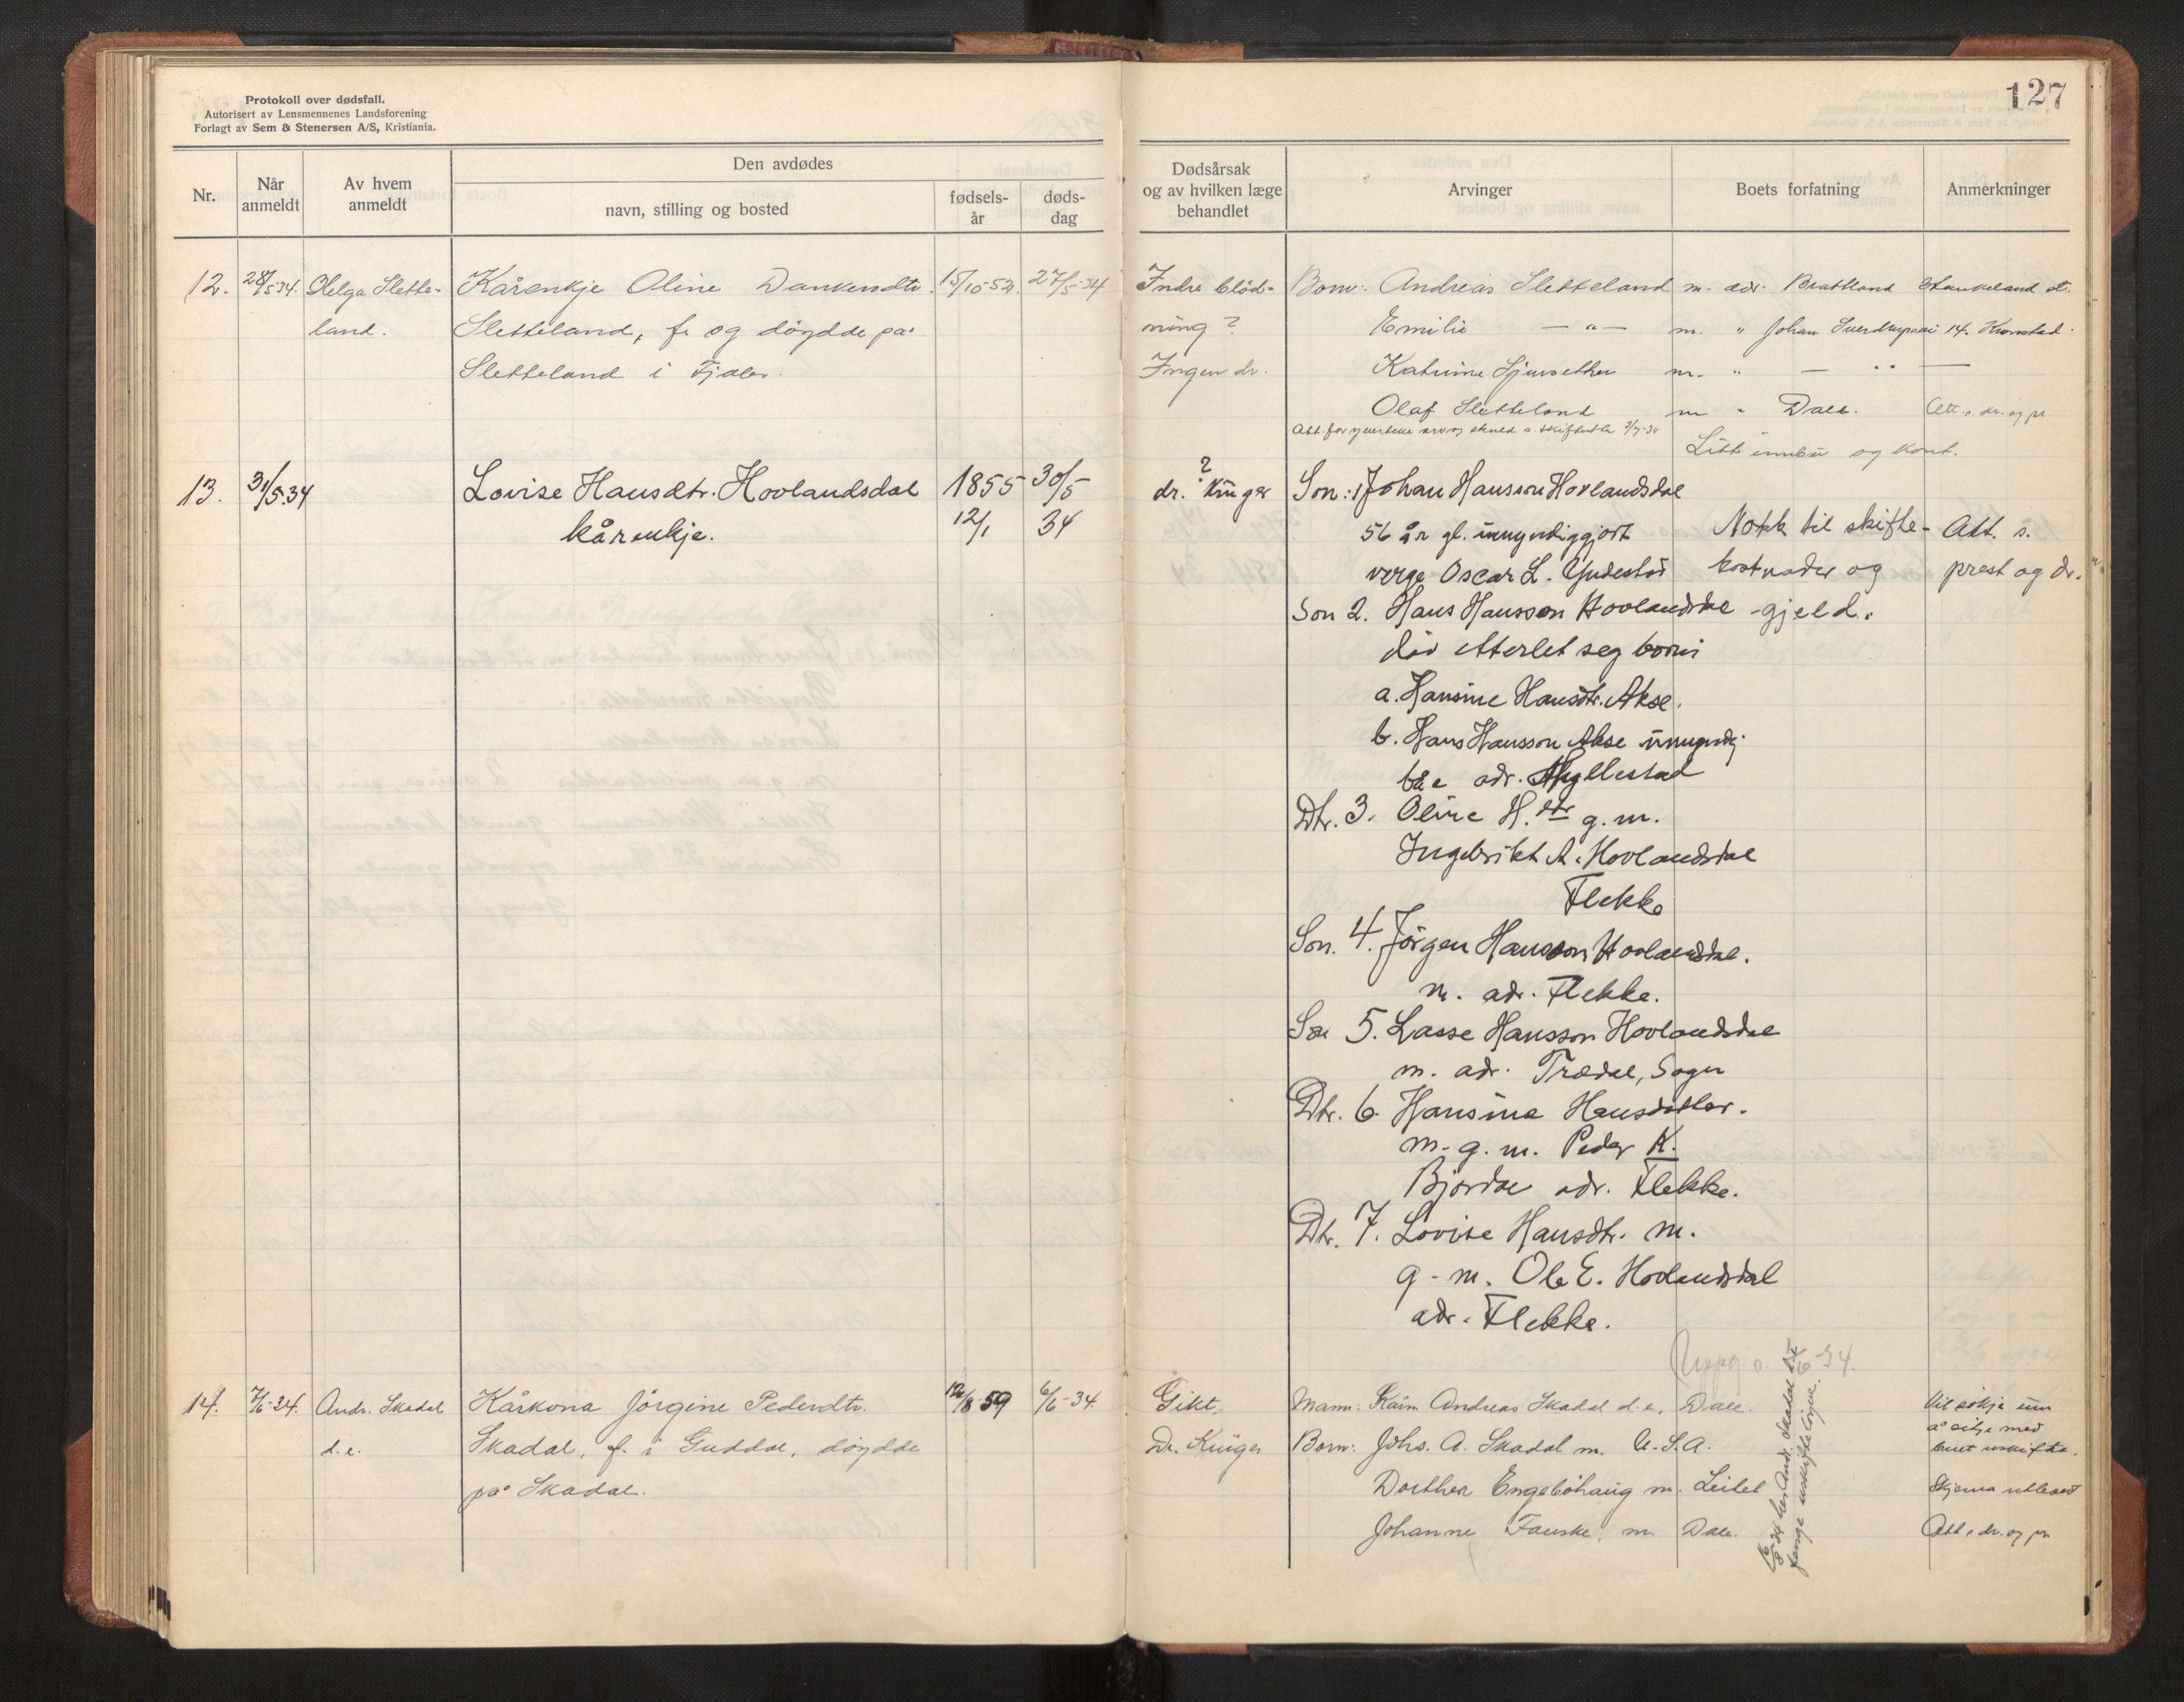 127
Protokoll over dødsfall.
Autorisert av Lensmennenes Landsforening
Forlagt av Sem & Stenersen A/S, Kristiania.
Nr.
Når anmeldt
Av hvem anmeldt
Den avdødes
navn, stilling og bosted
fødsels-år
døds-dag
Dødsårsak og av hvilken læge behandlet
Arvinger
Boets forfatning
Anmerkninger
12. 28/5-34. Helga Slette- Kårenkje Oline 15/10-52. 27/5-34 Indre blöd- Born: Andreas Sletteland m. adr. Brattland
land. Sletteland, f. og döydde på ning? Emilie — " — m. " Johan 14. Kronstad.
Sletteland i Fjaler. Ingen dr. Katrine m. " — " —
Olaf Sletteland m " Dale. Att. s. dr. og pr.
Att. for arv og skuld s. 2/7-34
Litt innbu og kont.
13. 31/5-34 Lovise Hansdtr. Hovlandsdal 1855 30/5 ? Son: 1 Johan Hansson Hovlandsdal
kårenkje. 12/1 34 dr. Krüger
56 år gl. umyndiggjort Nokk til skifte- Att. s.
verge Oscar L. Yndestad kostnader og prest og dr.
Son 2. Hans Hansson Hovlandsdal -gjeld.
död etterlet seg born:
a. Hansine Hansdtr. Akse.
b. Hans Hansson Akse umyndig
båe adr. Hyllestad
Dtr. 3. Oline H. dtr g.m.
Ingebrikt A. Hovlandsdal
Flekke
Son. 4. Jörgen Hansson Hovlandsdal.
m. adr. Flekke.
Son 5. Lasse Hansson Hovlandsdal
m. adr. Trædal, Sogn
Dtr. 6. Hansina Hansdotter.
m. g. m. Peder K.
Bjordal adr. Flekke.
Dtr. 7. Lovise Hansdtr. m.
g. m. Ole E. Hovlandsdal
adr. Flekke.
14. 7/6-34. Andr. Skadal Kårkona Jörgine Pedersdtr. 12/8-59 6/6-34. Gikt. Mann: Kårm. Andreas Skadal d.e. Dale. Vil sökje um
d.e. Skadal, f. i Guddal, döydde Dr. Krüger Born: Johs. A. Skadal m. U.S.A. å sitje med
buet uskifta.
på Skadal. Dorthea Engeböhaug m. Leitet Skjema utlevert
Johanne Fauske. m. Dale. Att. s. dr. og pr.